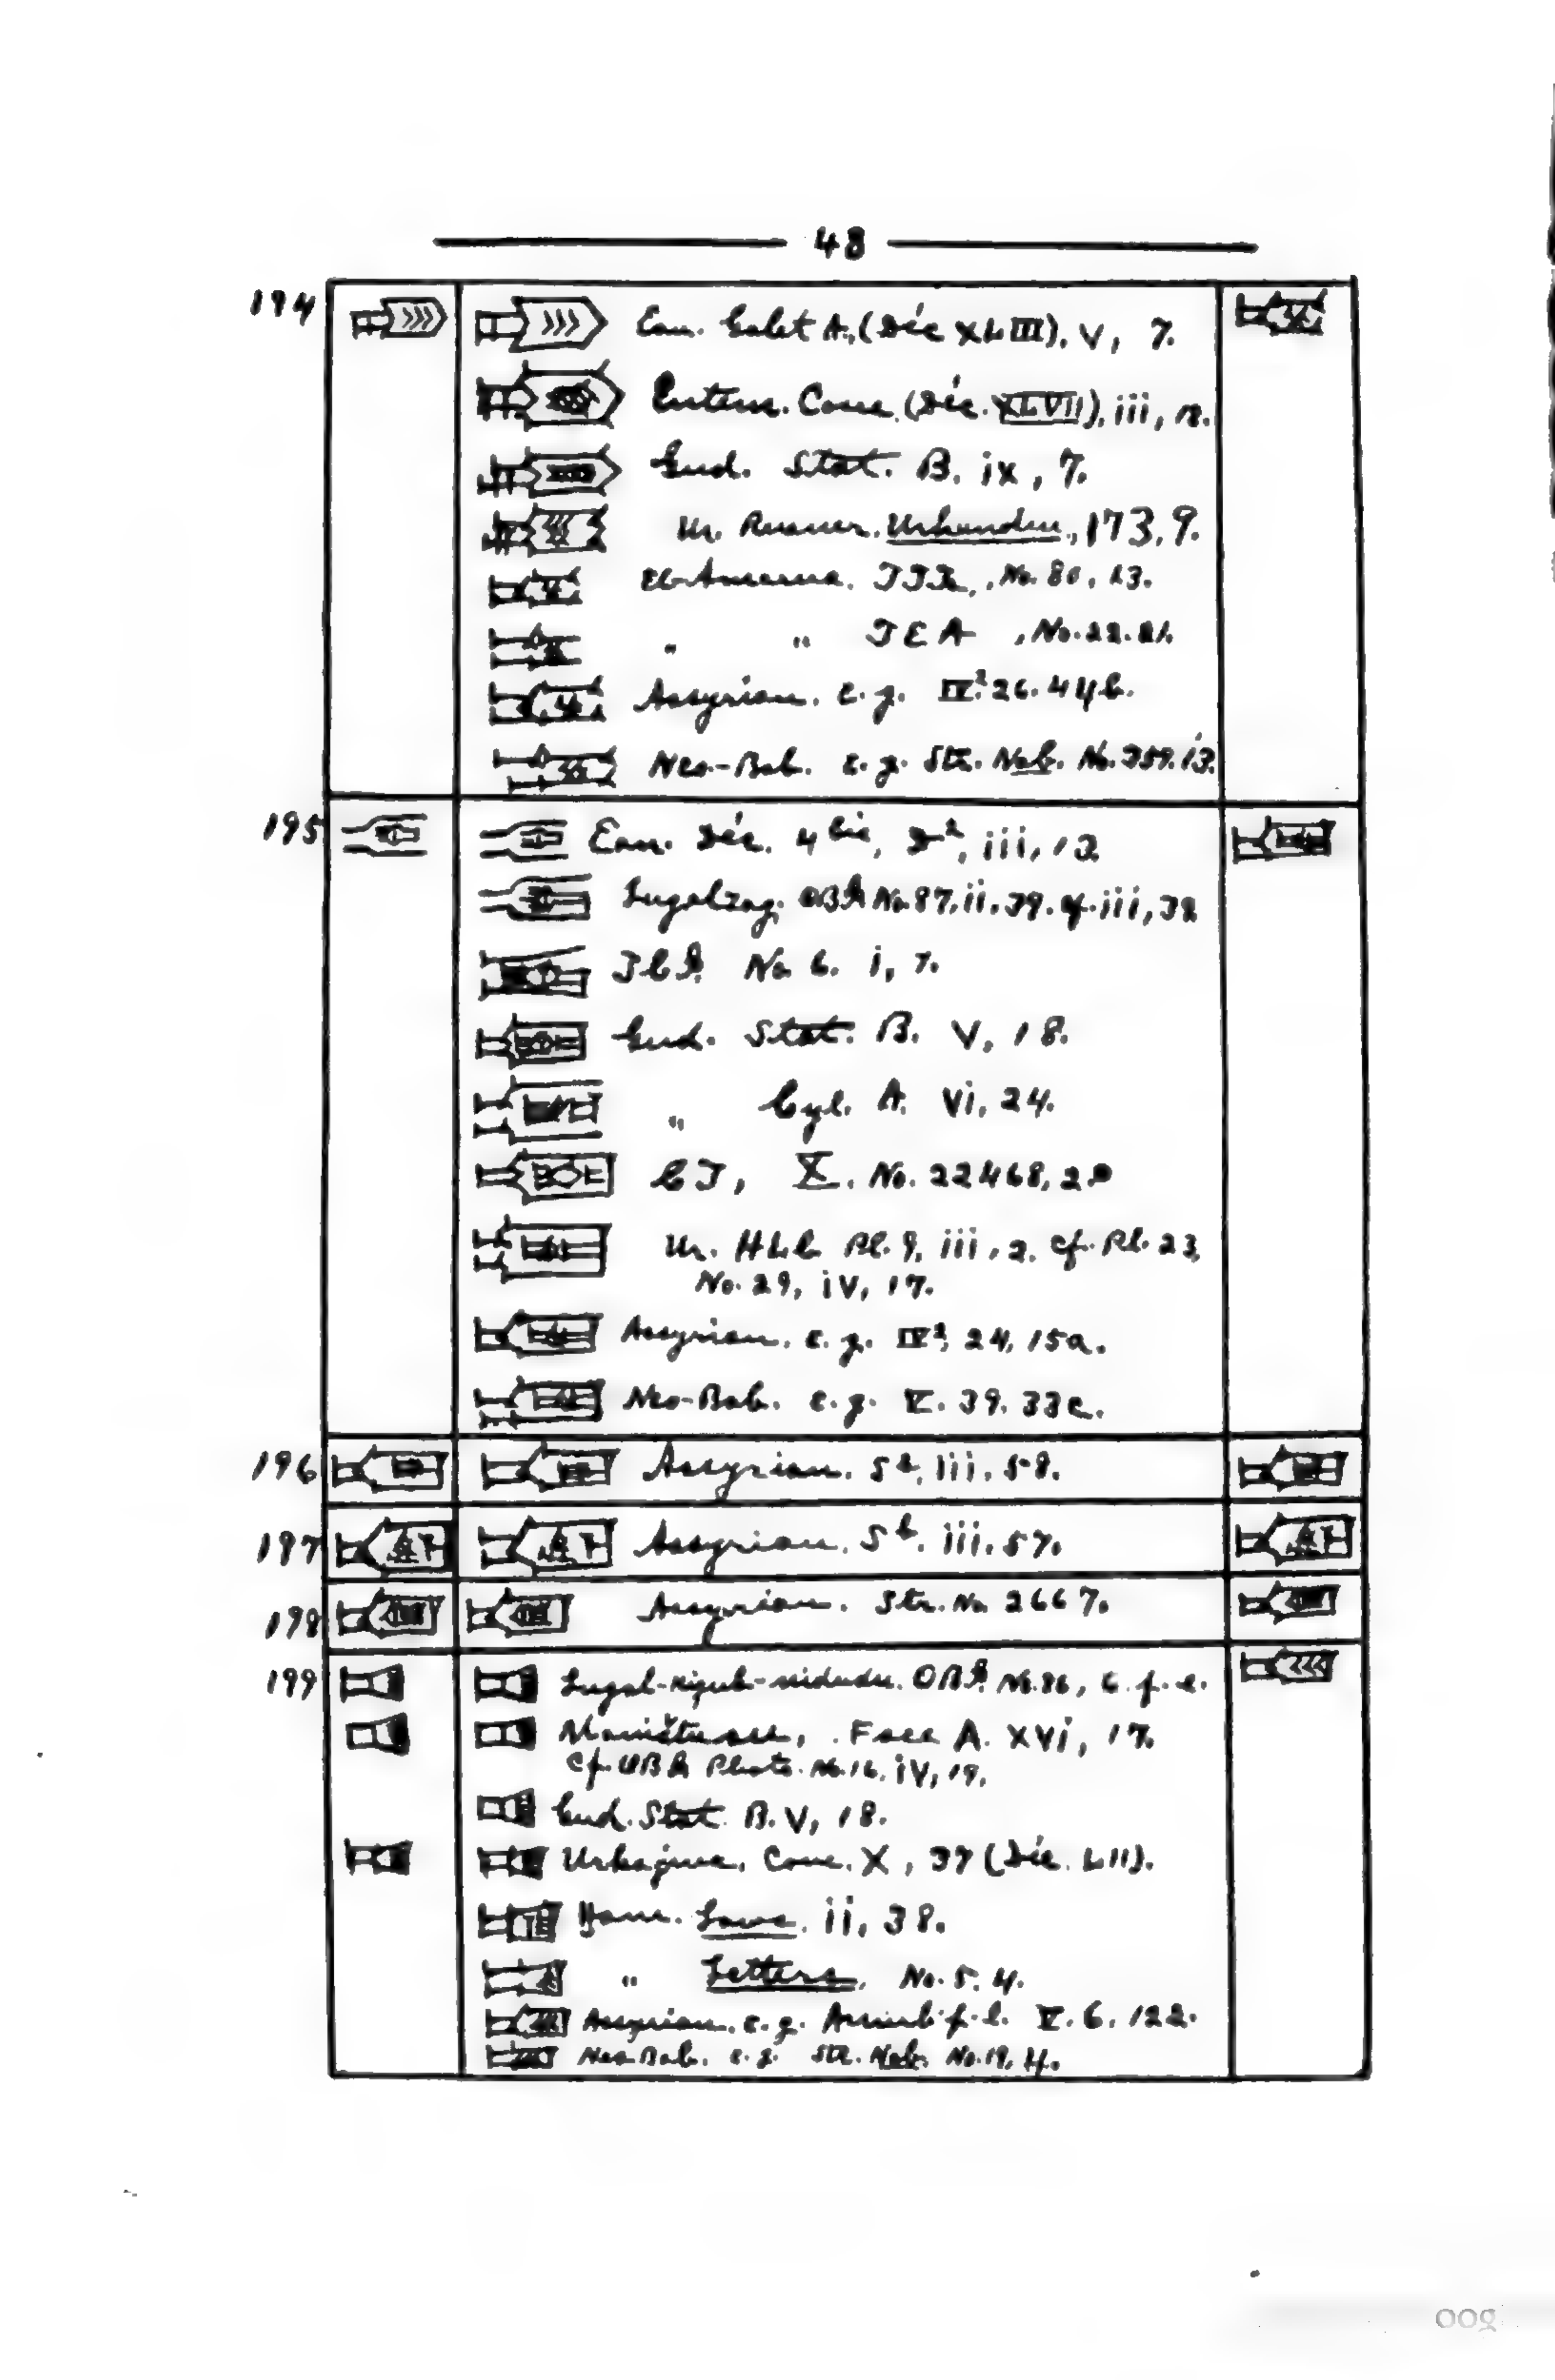 48
194 Ean. Galet A, (Déc XLIII), V, 7.
Entem. Cone (Déc. XLVII), iii, 18.
Gud. Stat. B. ix, 7.
Ur. Urkunden, 173, 9.
El-Amarna. No. 80, 13.
" " TEA, No. 22. 21.
Assyrian. e.g. IV² 26. 44b.
Neo-Bab. e.g. Str. Nab. No. 359. 13.
195 Ean. Déc. 4 bis, D², iii, 12
Lugalzag. OBI No 87, ii, 39. cf. iii, 32
No 6. i, 7.
Gud. Stat. B. V, 18.
" Cyl. A. Vi, 24.
CT, X. No. 22468, 20
Ur. HLC Pl. 9, iii, 2. cf. Pl. 23,
No. 29, iV, 17.
Assyrian. e.g. IV², 24, 15a.
Neo-Bab. e.g. V. 39. 33c.
196 Assyrian. Sb, iii. 58.
197 Assyrian. Sb. iii. 57.
198 Assyrian. Str. No 2667.
199 OBI No. 86, 6.
Face A. XVi, 17.
cf. OBI Photo. No. 16, iV, 19.
Gud. Stat. B. V, 18.
Cone. X, 37 (Déc. LII).
Ham. Laws. ii, 38.
" Letters, No. 5. 4.
Assyrian. e.g. V. 6. 122.
Neo-Bab. e.g. Str. Nab. No. 19, 4.
oog